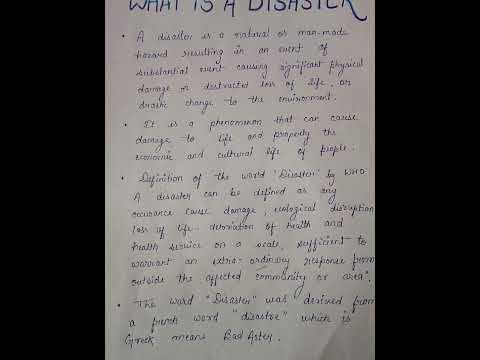 WHAT IS A DISASTER
• A disaster is a natural or man-made
hazard resulting in an event of
substantial event causing significant physical
damage or destructed loss of life, or
drastic change to the environment.
• It is a phenomenon that can cause
damage to life and property the
economic and cultural life of people.
• Definition of the word 'Disaster' by WHO
A disaster can be defined as any
occurance cause damage, ecological disruption
loss of life deterioration of health and
health service on a scale, sufficient to
warrant an extra-ordinary response from
outside the affected community or area".
• The word "Disaster" was derived from
a french word "disastre" which is
Greek means Bad Aster.